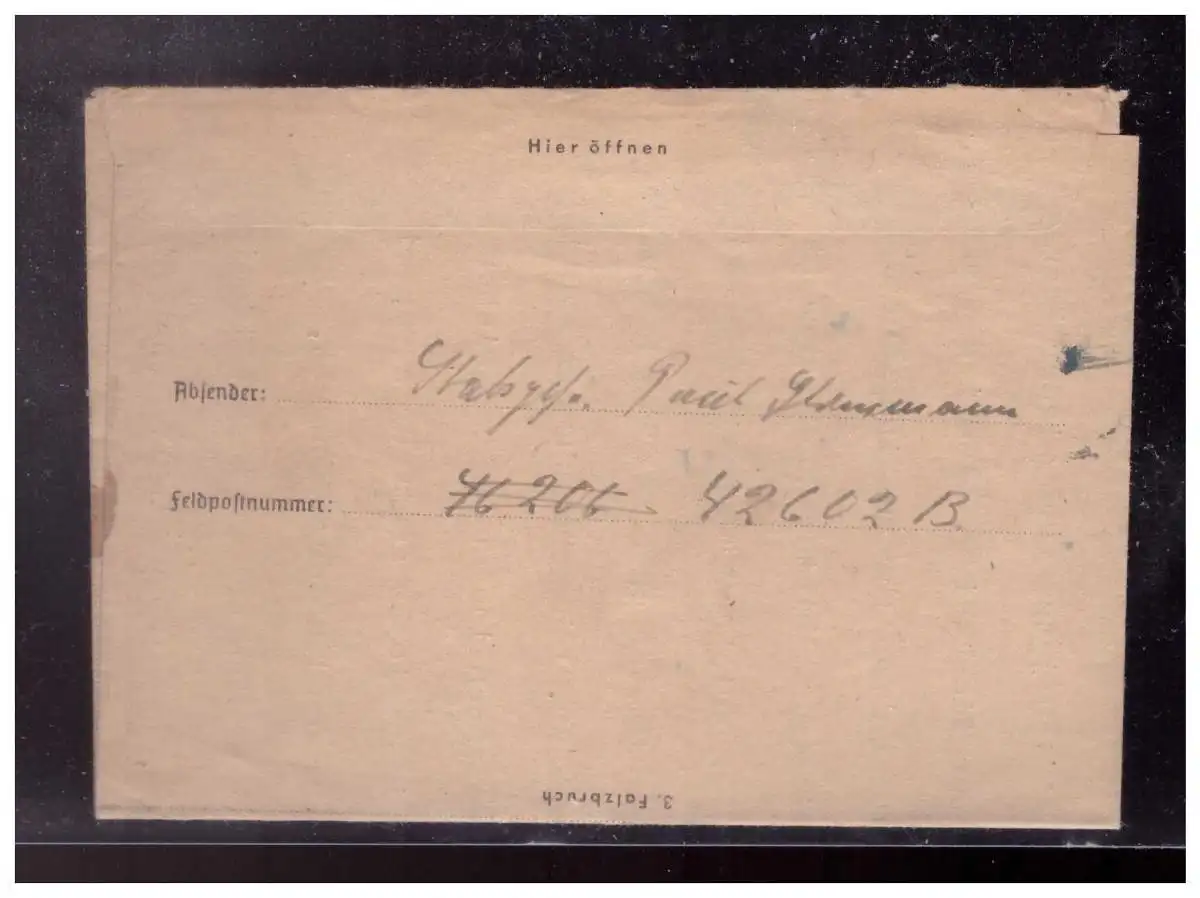 Hier öffnen
Absender: Stabsgefr. Paul
Feldpostnummer: 46206 42602 B
3. Falzbruch